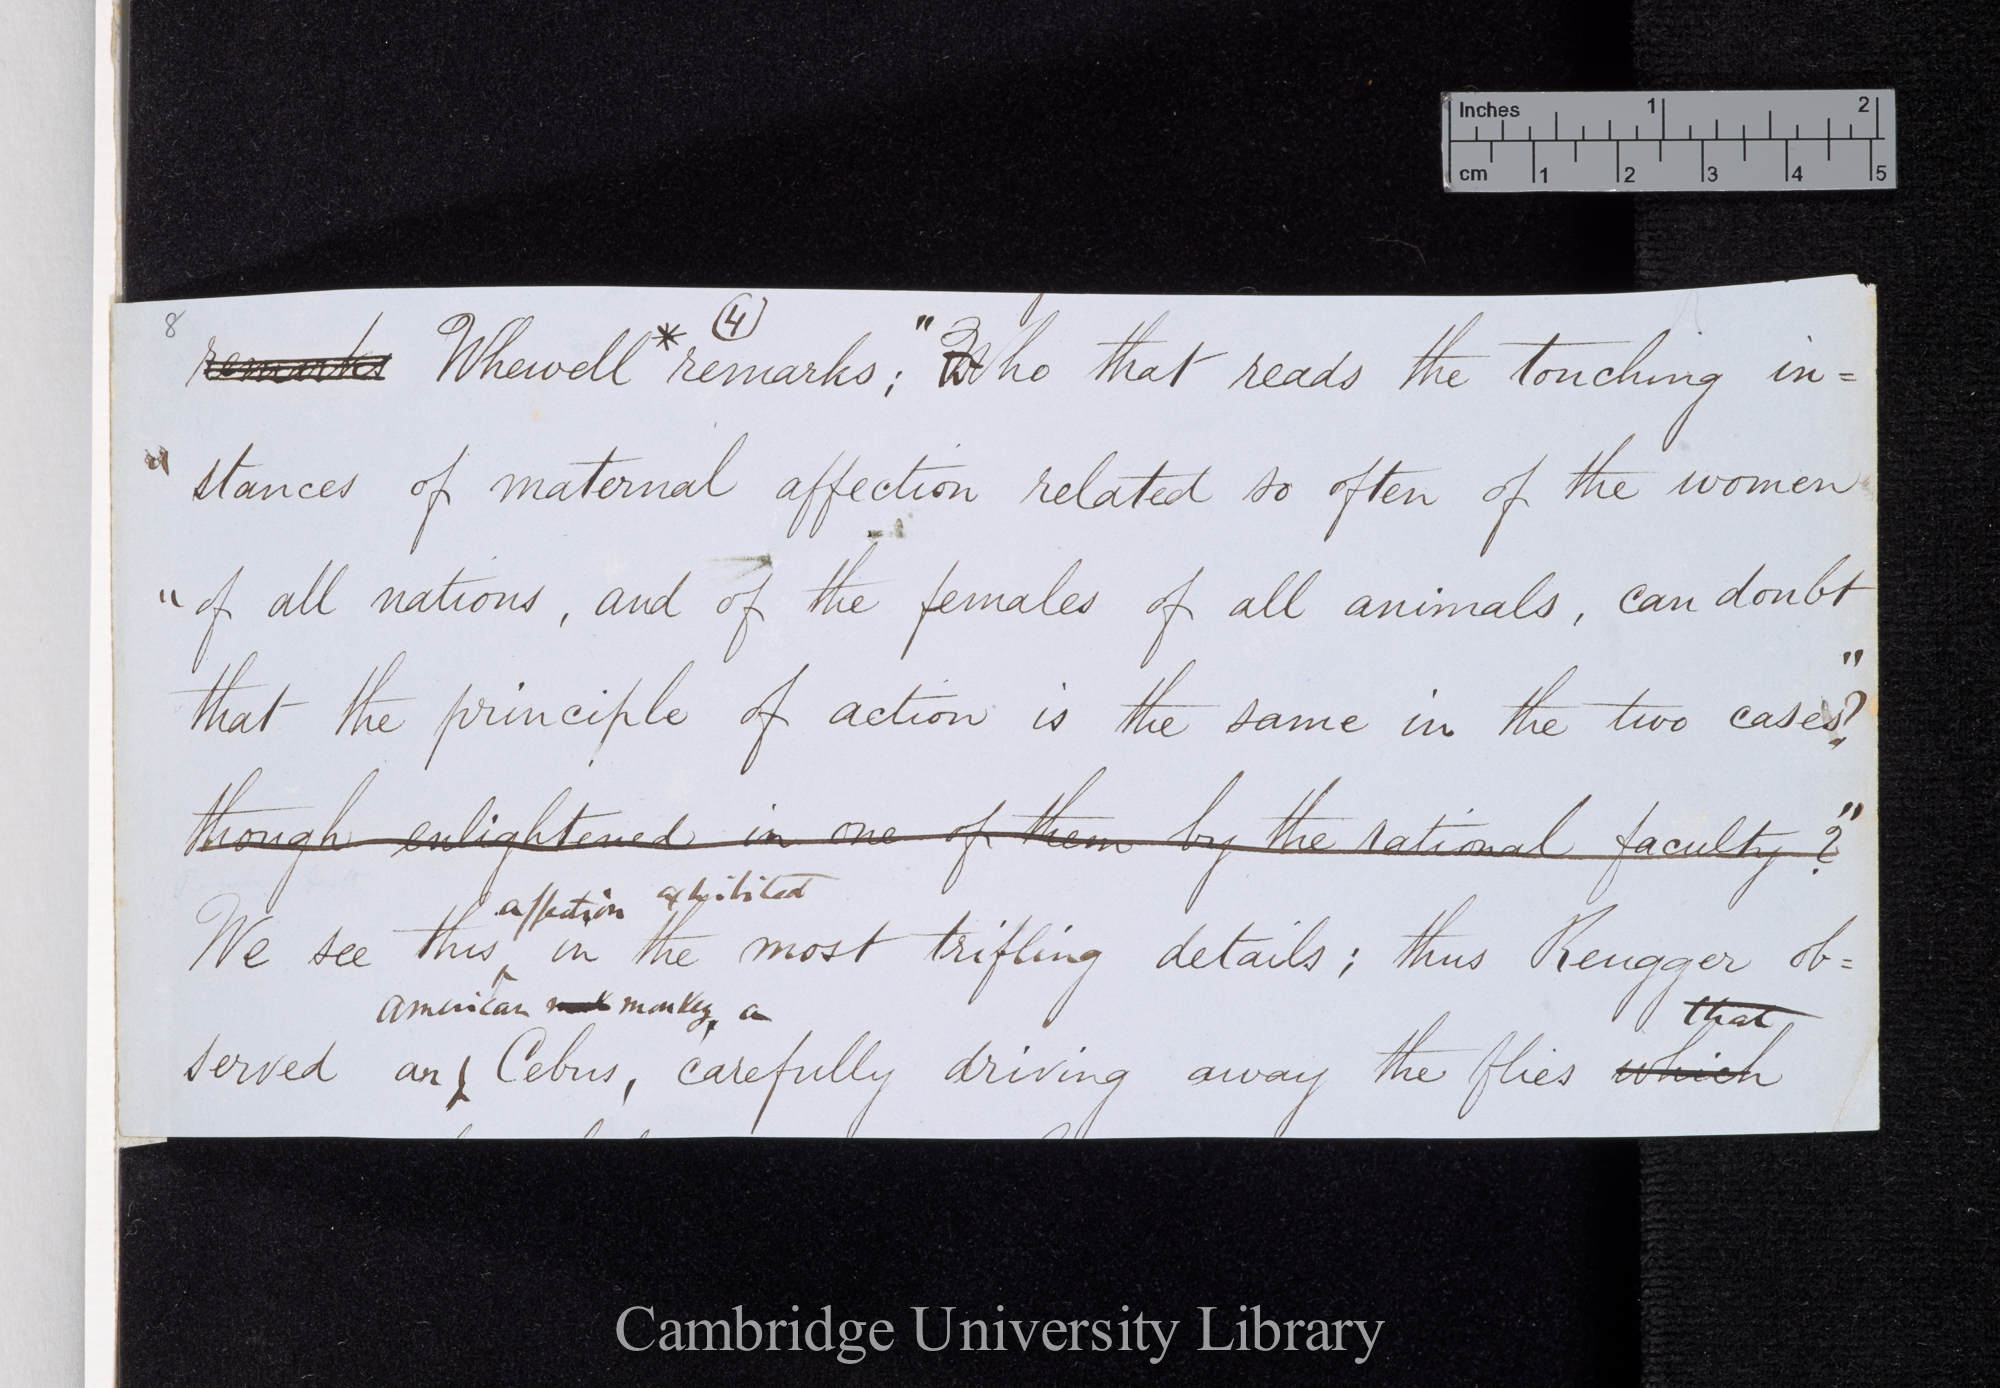 Inches 1 2
cm 1 2 3 4 5
8
④
remarks Whewell* remarks; "Who that reads the touching in=
"stances of maternal affection related so often of the women
"of all nations, and of the females of all animals, can doubt
that the principle of action is the same in the two cases?"
though enlightened in one of them by the rational faculty?"
affection exhibited
We see this ‸ in the most trifling details; thus Rengger ob=
American monkey, a that
served an Cebus, carefully driving away the flies which
Cambridge University Library